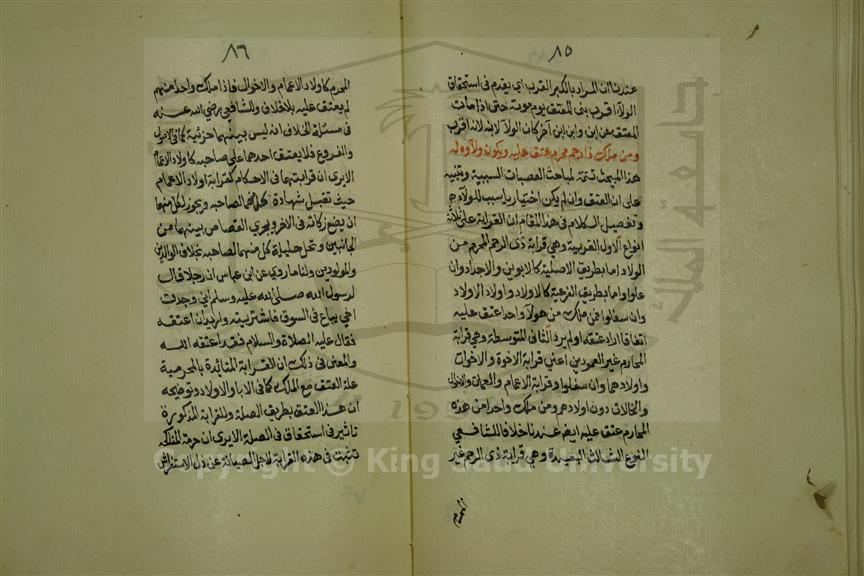 ٨٥
عندنا ان المراد بالكبر القرب اي يقدم في استحقاق
الولاء اقرب بنى المعتق يوم موته حتى اذا مات
المعتق عن ابن وابن ابن آخر كان الولاء لابنه لانه اقرب
ومن ملك ذا رحم محرم عتق عليه ويكون ولاؤه له
هذا المبحث تتمة لمباحث العصبات السببية وتنبيه
على ان العتق وان لم يكن اختياريا سبب للولاء
وتفصيل الكلام في هذا المقام ان القرابة على ثلثة
انواع الاول القريبة وهي قرابة ذي الرحم المحرم من
الولاد اما بطريق الاصلية كالابوين والاجداد وان
علوا واما بطريق الفرعية كالاولاد واولاد الاولاد
وان سفلوا فمن ملك من هولاء واحدا عتق عليه
اتفاقا اراد عتقه اولم يرد الثاني المتوسطة وهي قرابة
المحارم غير العمودين اعني قرابة الاخوة والاخوات
واولادهما وان سفلوا وقرابة الاعمام والعمات والاخوال
والخالات دون اولادهم ومن ملك واحدا من هذه
المحارم عتق عليه ايضا عندنا خلافا للشافعي
النوع الثالث البعيدة وهي قرابة ذي الرحم غير
المحرم
٨٦
المحرم كاولاد الاعمام والاخوال فاذا ملك واحدا منهم
لم يعتق عليه بلا خلاف وللشافعي رضي الله عنه
في مسئلة الخلاف انه ليس بينهما جزئية كما في الاصول
والفروع فلا يعتق احدهما على صاحبه كاولاد الاعمام
الا يرى ان قرابتهما في الاحكام كقرابة اولاد الاعمام
حيث تقبل شهادة كل منهما لصاحبه ويجوز لكل منهما
ان يضع زكاته في الاخر ويجري القصاص بينهما من
الجانبين وتحل حليلة كل منهما لصاحبه بخلاف الوالدين
والمولودين ولنا ما روي عن ابن عباس ان رجلا قال
لرسول الله صلى الله عليه وسلم اني وجدت
اخي يباع في السوق فاشتريته واريد ان اعتقه
فقال عليه الصلاة والسلام فقد اعتقه الله
والمعنى في ذلك ان القرابة المتائدة بالمحرمية
علة العتق مع الملك كما في الاباء والاولاد وتوضيحه
ان هذا العتق بطريق الصلة وللقرابة المذكورة
تاثير في استحقاق الصلة الا يرى ان حرمة المناكحة
تثبت في هذه القرابة لاجل الصيانة عن ذل الاستفراش
Copyright © King Saud University
جامعة الملك